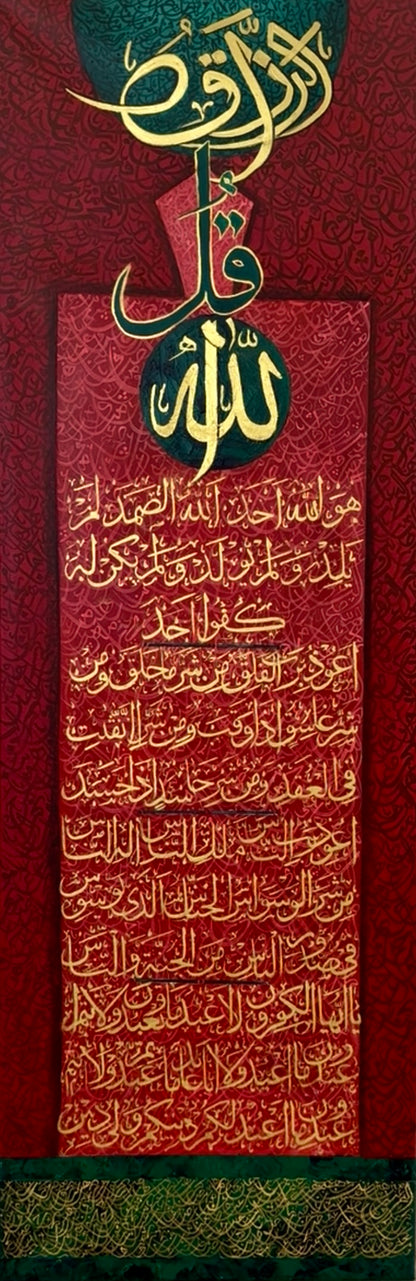 الرزاق
قل
الله
هو الله احد الله الصمد لم
يلد ولم يولد ولم يكن له
كفوا احد
اعوذ برب الفلق من شر ما خلق ومن
شر غاسق اذا وقب ومن شر النفثت
في العقد ومن شر حاسد اذا حسد
اعوذ برب الناس ملك الناس اله الناس
من شر الوسواس الخناس الذي يوسوس
في صدور الناس من الجنة والناس
يا ايها الكفرون لا اعبد ما تعبدون ولا انتم
عبدون ما اعبد ولا انا عابد ما عبدتم ولا انتم
عبدون ما اعبد لكم دينكم ولي دين